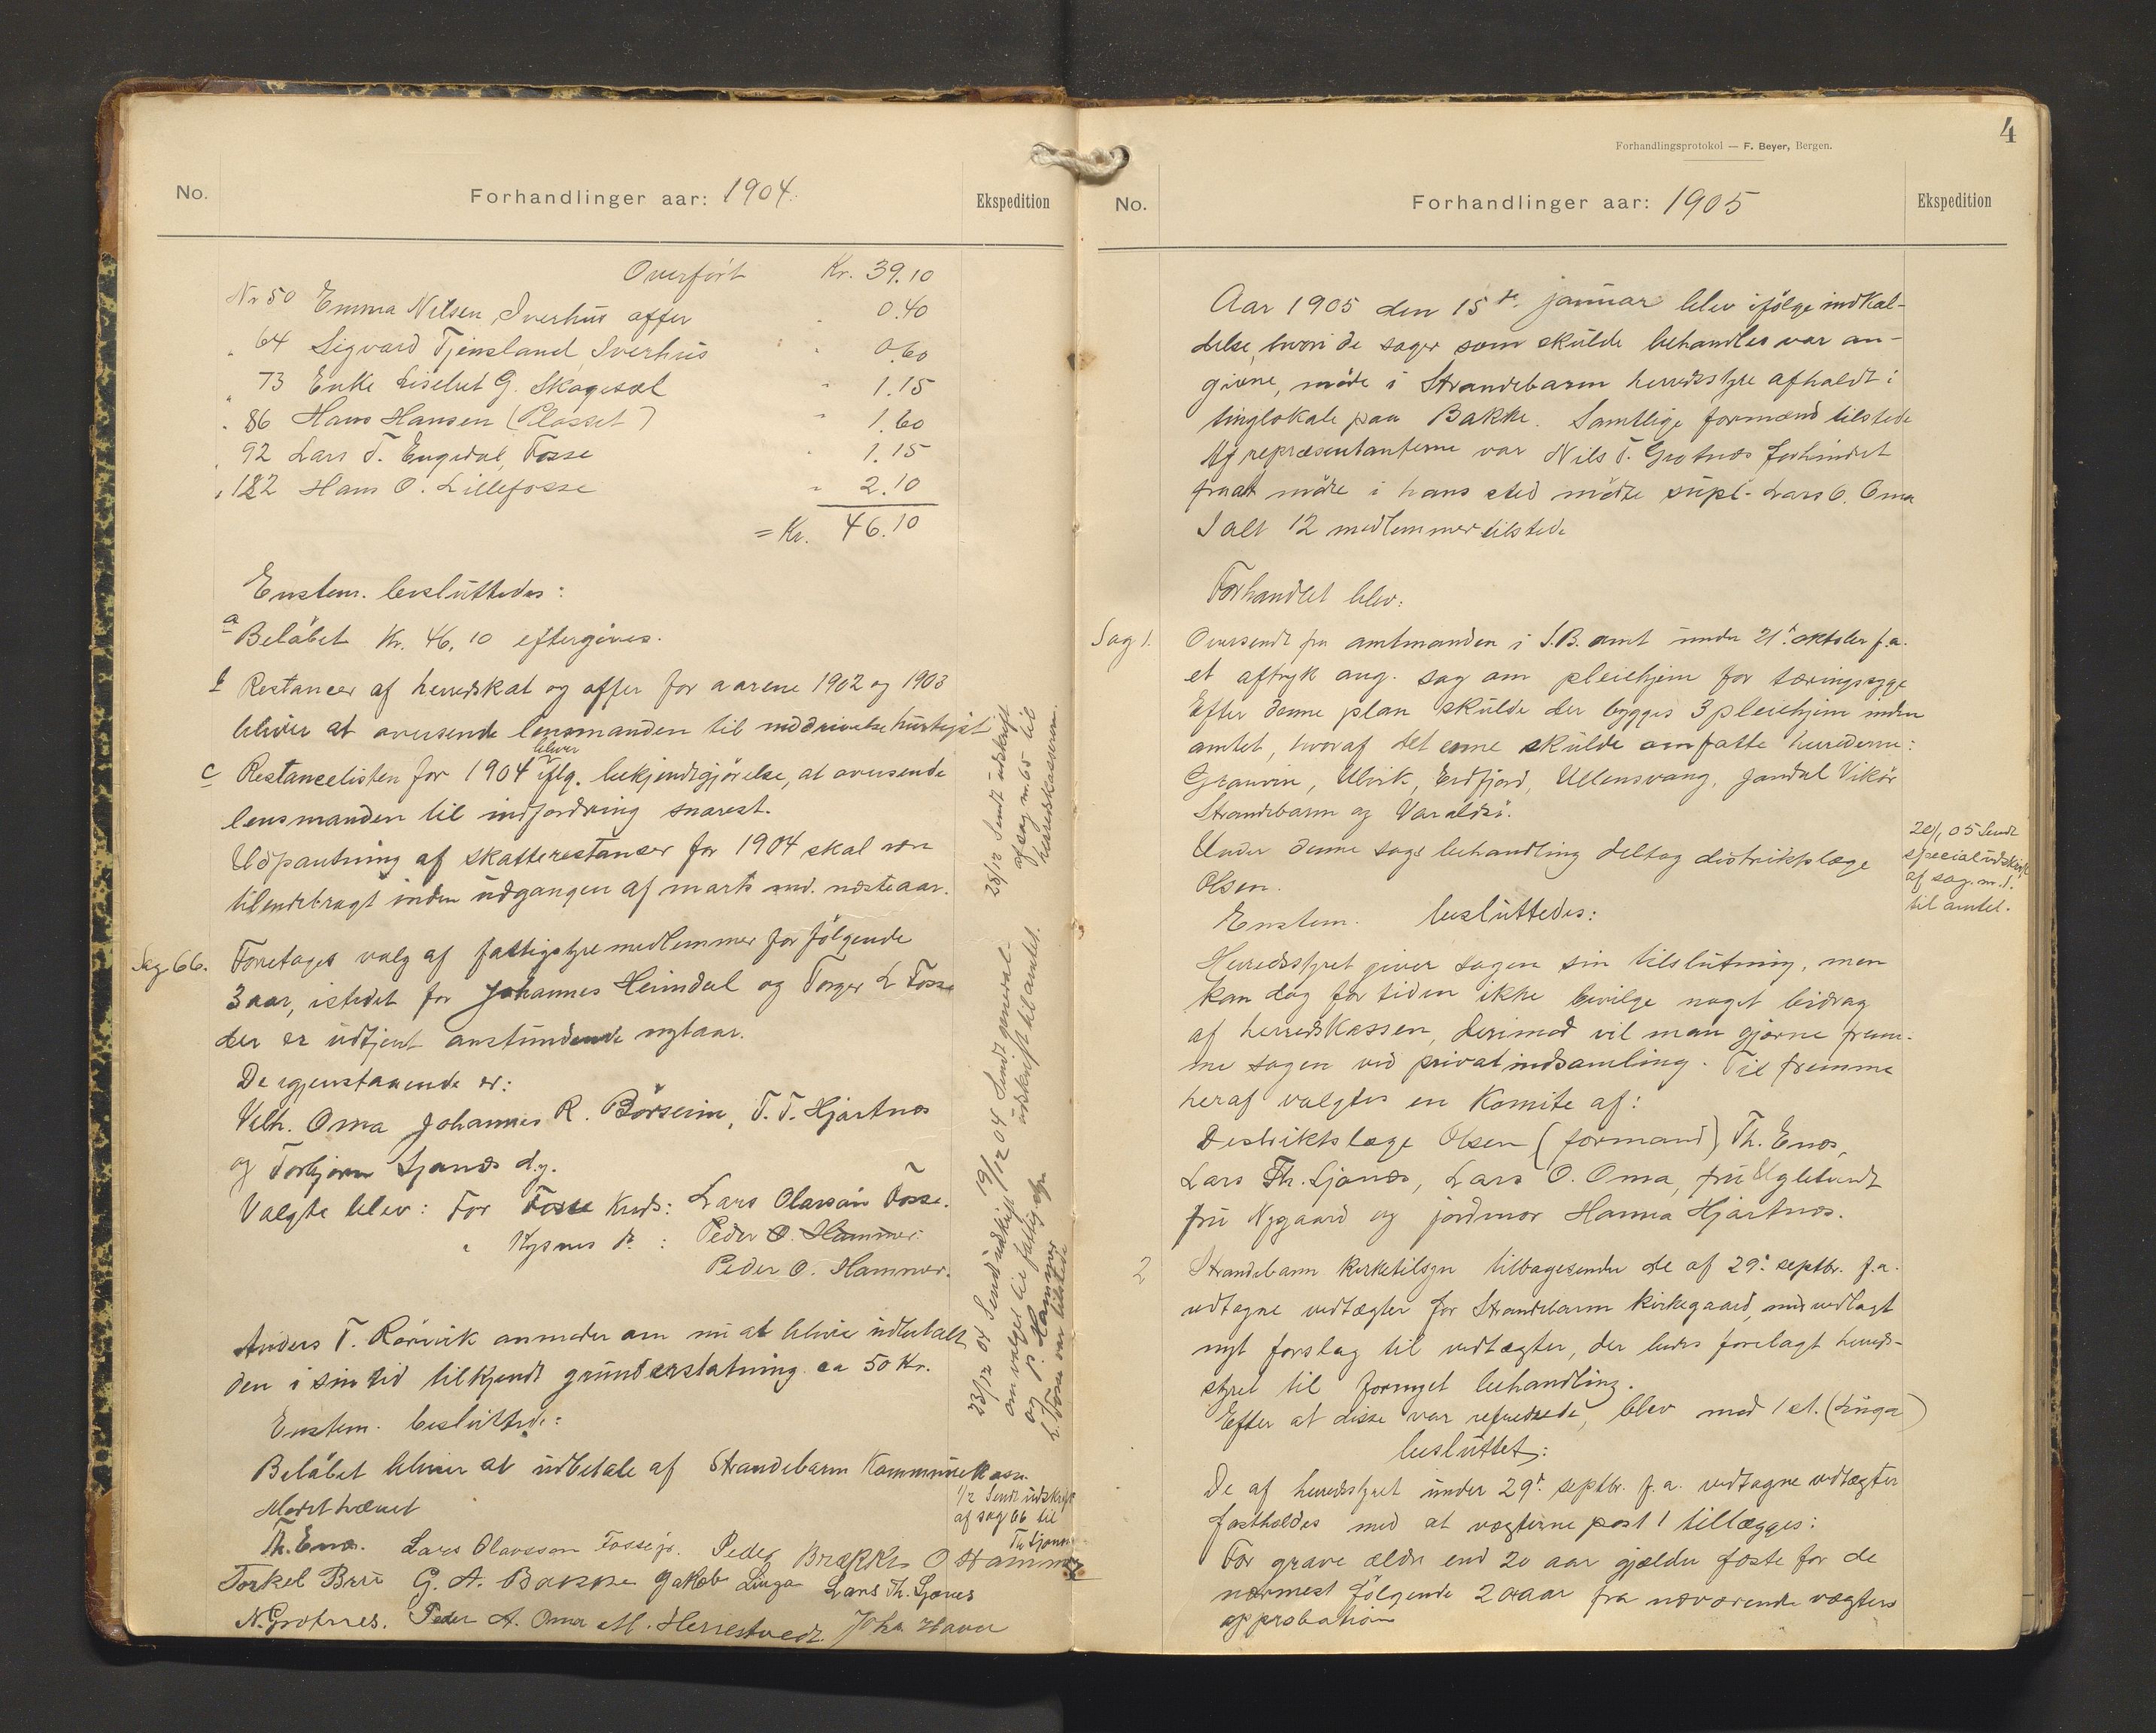 No.
Forhandlinger aar: 1904.
Ekspedition
Overført Kr. 39.10
Nr 50 Emma Nilsen, Iverhus offer " 0.40
" 64 Sigvard Tjensland Iverhus " " 0.60
" 73 Enke Liselut G. Skogesæl " 1.15
" 86 Hans Hansen (Plasset) " 1.60
" 92 Lars T. Engedal, Fosse " 1.15
" 122 Hans O. Lillefosse " 2.10
= Kr. 46.10
Enstem. besluttedes:
a Beløbet Kr. 46,10 eftergives.
b Restancer af herredskat og offer for aarene 1902 og 1903
bliver at oversende lensmanden til inddrivelse hurtigst
bliver
c Restancelisten for 1904 iflg. bekjendtgjørelse, at oversende
lensmanden til indfordring snarest.
Udpantning af skatterestanser for 1904 skal være
tilendebragt inden udgangen af marts md. næste aar.
Sag 66. Foretages valg af fattigstyremedlemmer for følgende
3 aar, istedet for Johannes Heimdal og Torger L Fosse
der er udtjent anstundende nytaar.
De igjenstaaende er:
Vilh. Oma Johannes R. Børseim, T. T. Hjartnes
og Torbjørn Ljones d.y.
Valgte blev: For Fosse Kreds: Lars Olavson Fosse.
" Kysnes K. : Peder O. Hammer
Peder O. Hammer.
Anders T. Rørvik anmoder om nu at blive udbetalt
den i sin tid tilkjendt grunderstatning ca 50 Kr.
Enstem. besluttedes:
Beløbet bliver at udbetale af Strandebarm Kommunekasse.
Mødet hævet
Th. Enes. Lars Olavsson Fosse jr. Peder Brække O Hammer
Torkel Bru G. A. Bakke Jakob Linga Lars Th. Ljones
N. Grotnes. Peder A. Oma M. Herrestvedt. Johs Hava
28/12 Sendt udskrift
af sag nr. 65 til
herredskasseren.
19/12 04 Sendt general-
udskrift til amtet.
23/12 04 Sendt udskrift
om valget til fattigstyre
og P. Hammer
L. Fosse var tilstede
1/2 Sendt udskrift
af sag 66 til
Th Ljones
4
Forhandlingsprotokol — F. Beyer, Bergen.
No.
Forhandlinger aar: 1905
Ekspedition
Aar 1905 den 15de januar blev ifølge indkal-
delse, hvori de sager som skulde behandles var an-
givne, møde i Strandebarm herredsstyre afholdt i
tinglokale paa Bakke. Samtlige formænd tilstede
Af repræsentanterne var Nils T. Grotnes forhindret
fra at møde i hans sted mødte supl. Lars O. Oma
I alt 12 medlemmer tilstede
Forhandlet blev:
Sag 1. Oversendt fra amtmanden i S.B. amt under 21. oktober f.a.
et aftryk ang. sag om pleiehjem for tæringssyge
Efter denne plan skulde der bygges 3 pleiehjem inden
amtet, hvoraf det enne skulde omfatte herrederne:
Granvin, Ulvik, Eidfjord, Ullensvang, Jondal Vikør
Strandebarm og Varaldsø.
Under denne sags behandling deltog distriktslæge
Olsen.
Enstem. besluttedes:
Herredsstyret giver sagen sin tilslutning, men
kan dog for tiden ikke bevilge noget bidrag
af herredskassen, derimod vil man gjerne frem-
me sagen ved privat indsamling. Til fremme
heraf valgtes en Komite af:
Destriktslæge Olsen (formand) Th. Enes,
Lars Th. Ljones, Lars O. Oma, fru Ugletvedt
fru Nygaard og jordmor Hanna Hjartnes.
2 Strandebarm kirketilsyn tilbagesender de af 29. septbr. f.a.
vedtagne vedtægter for Strandebarm kirkegaard, med vedlagt
nyt forslag til vedtægter, der bedes forelagt herreds-
styret til fornyet behandling.
Efter at disse var refererede, blev mod 1 st. (Linga)
besluttet:
De af herredsstyret under 29. septbr. f.a. vedtagne vedtægter
fastholdes med at vegterne post 1 tillægges:
For grave ældre end 20 aar gjælder fæste for de
nærmest følgende 20 aar fra nærværende vægters
approbation
20/1 05 Sendt
specialudskrift
af sag nr. 1.
til amtet.